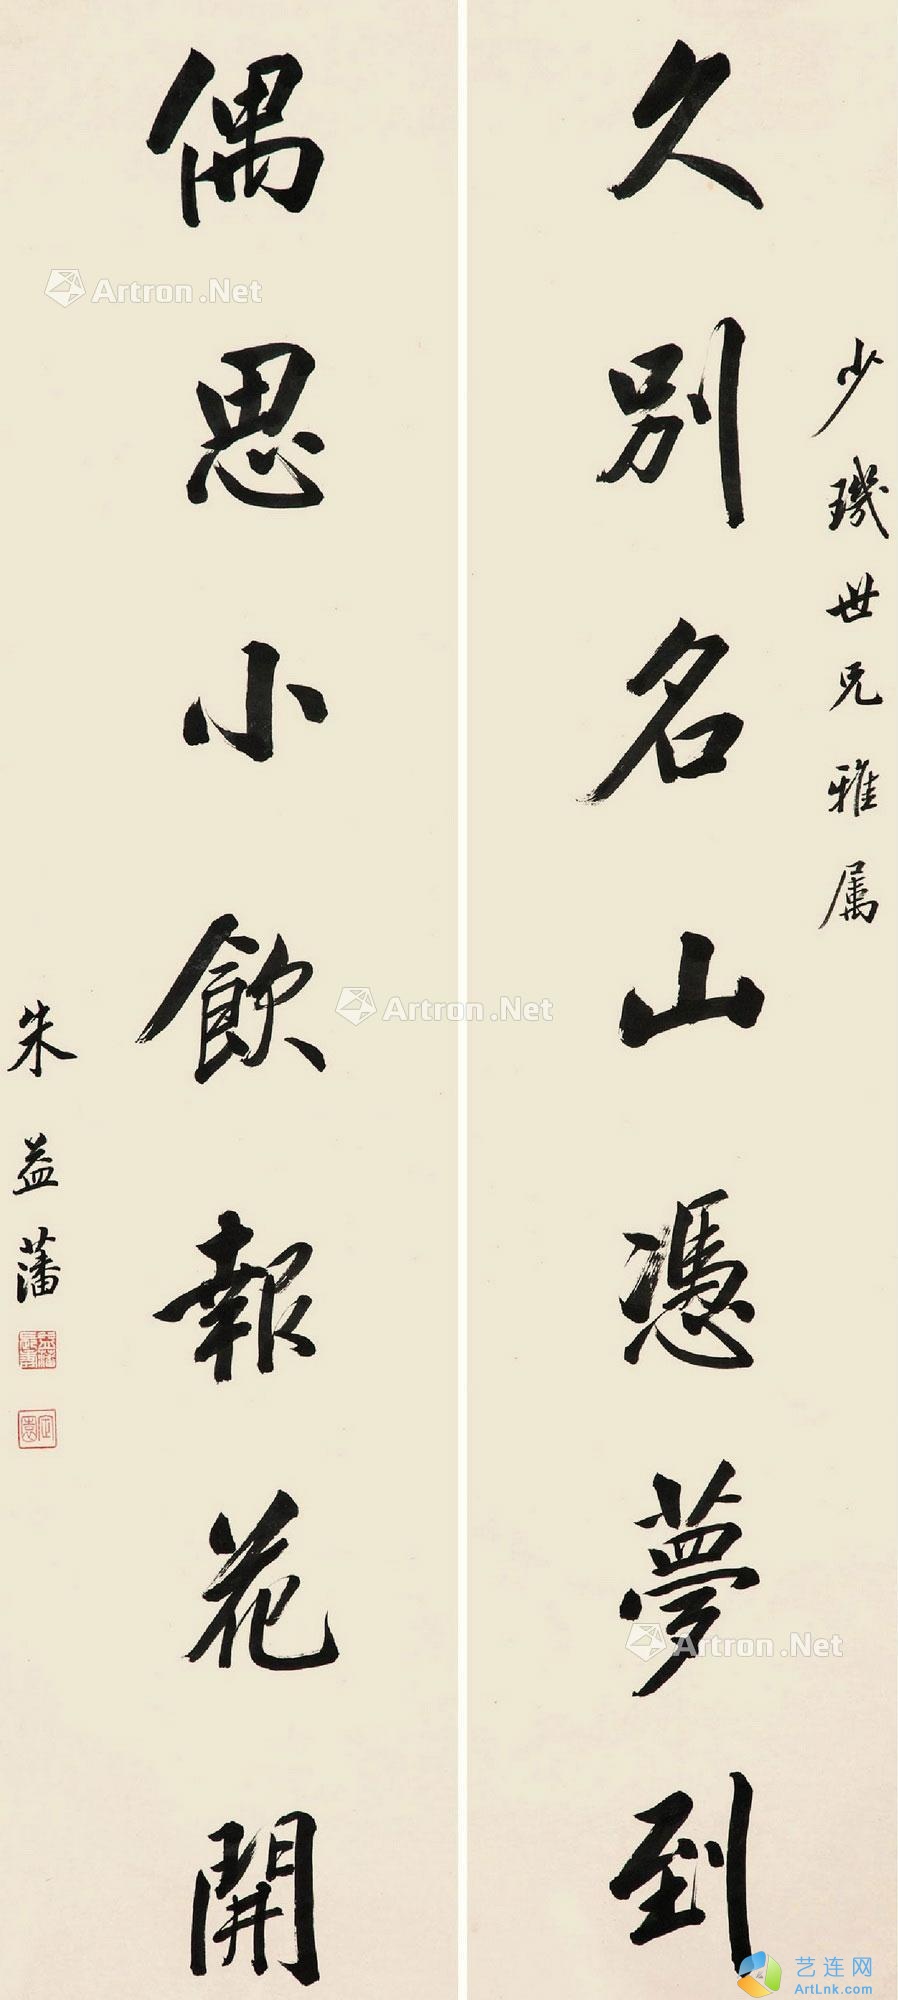 少璣世兄雅属
久別名山憑夢到
偶思小飲報花開
朱益藩
Artron.Net
Artron.Net
Artron.Net
艺连网
ArtLnk.com